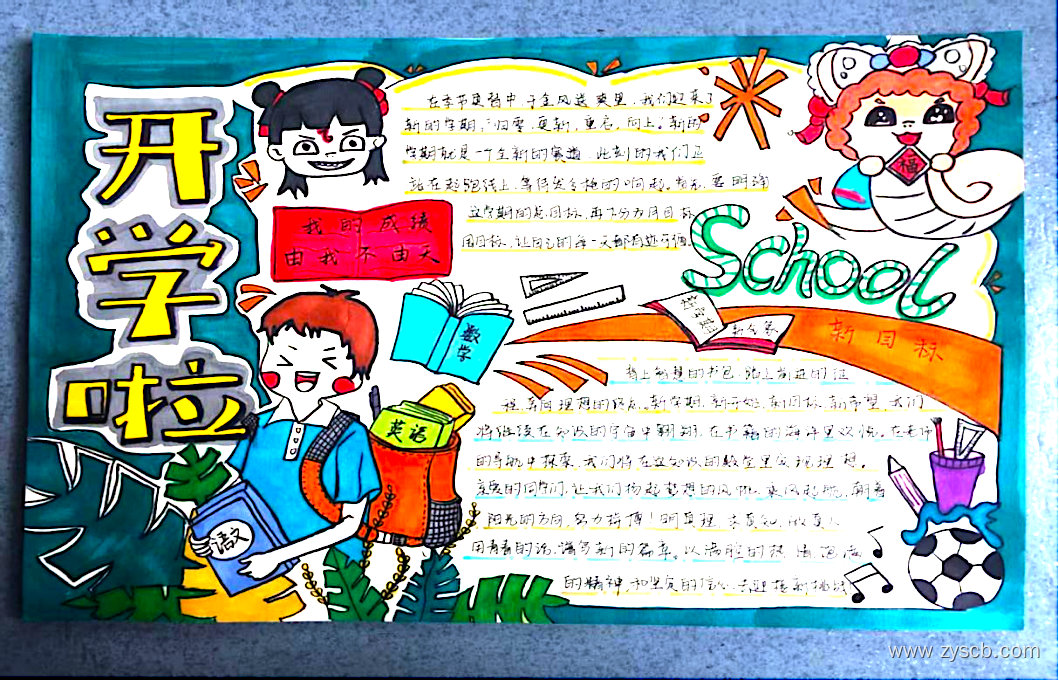 开学啦
在季节更替中，于金风送爽里，我们迎来了
新的学期，“归零，更新，重启，向上”新的
学期就是一个全新的赛道，此刻的我们正
站在起跑线上，等待发令枪的响起。首先，要明确
这学期的总目标，再细分为月目标
周目标，让自己的每一天都有迹可循。
我的成绩
由我不由天
福
School
数学
新学期
新气象
新目标
背上智慧的书包，踏上前进的征
程，奔向理想的终点，新学期，新开始，新目标，新希望，我们
将继续在知识的宇宙中翱翔，在书籍的海洋里
的导航中探索，我们将在这知识的殿堂里发现理想。
亲爱的同学们，让我们扬起梦想的风帆，乘风破浪，朝着
阳光的方向，努力拼搏！明真理，求真知，做真人
用青春的话，谱写新的篇章。以满腔的热情
的精神，和坚定的信心，去迎接新挑战
英语
语文
www.zyscb.com